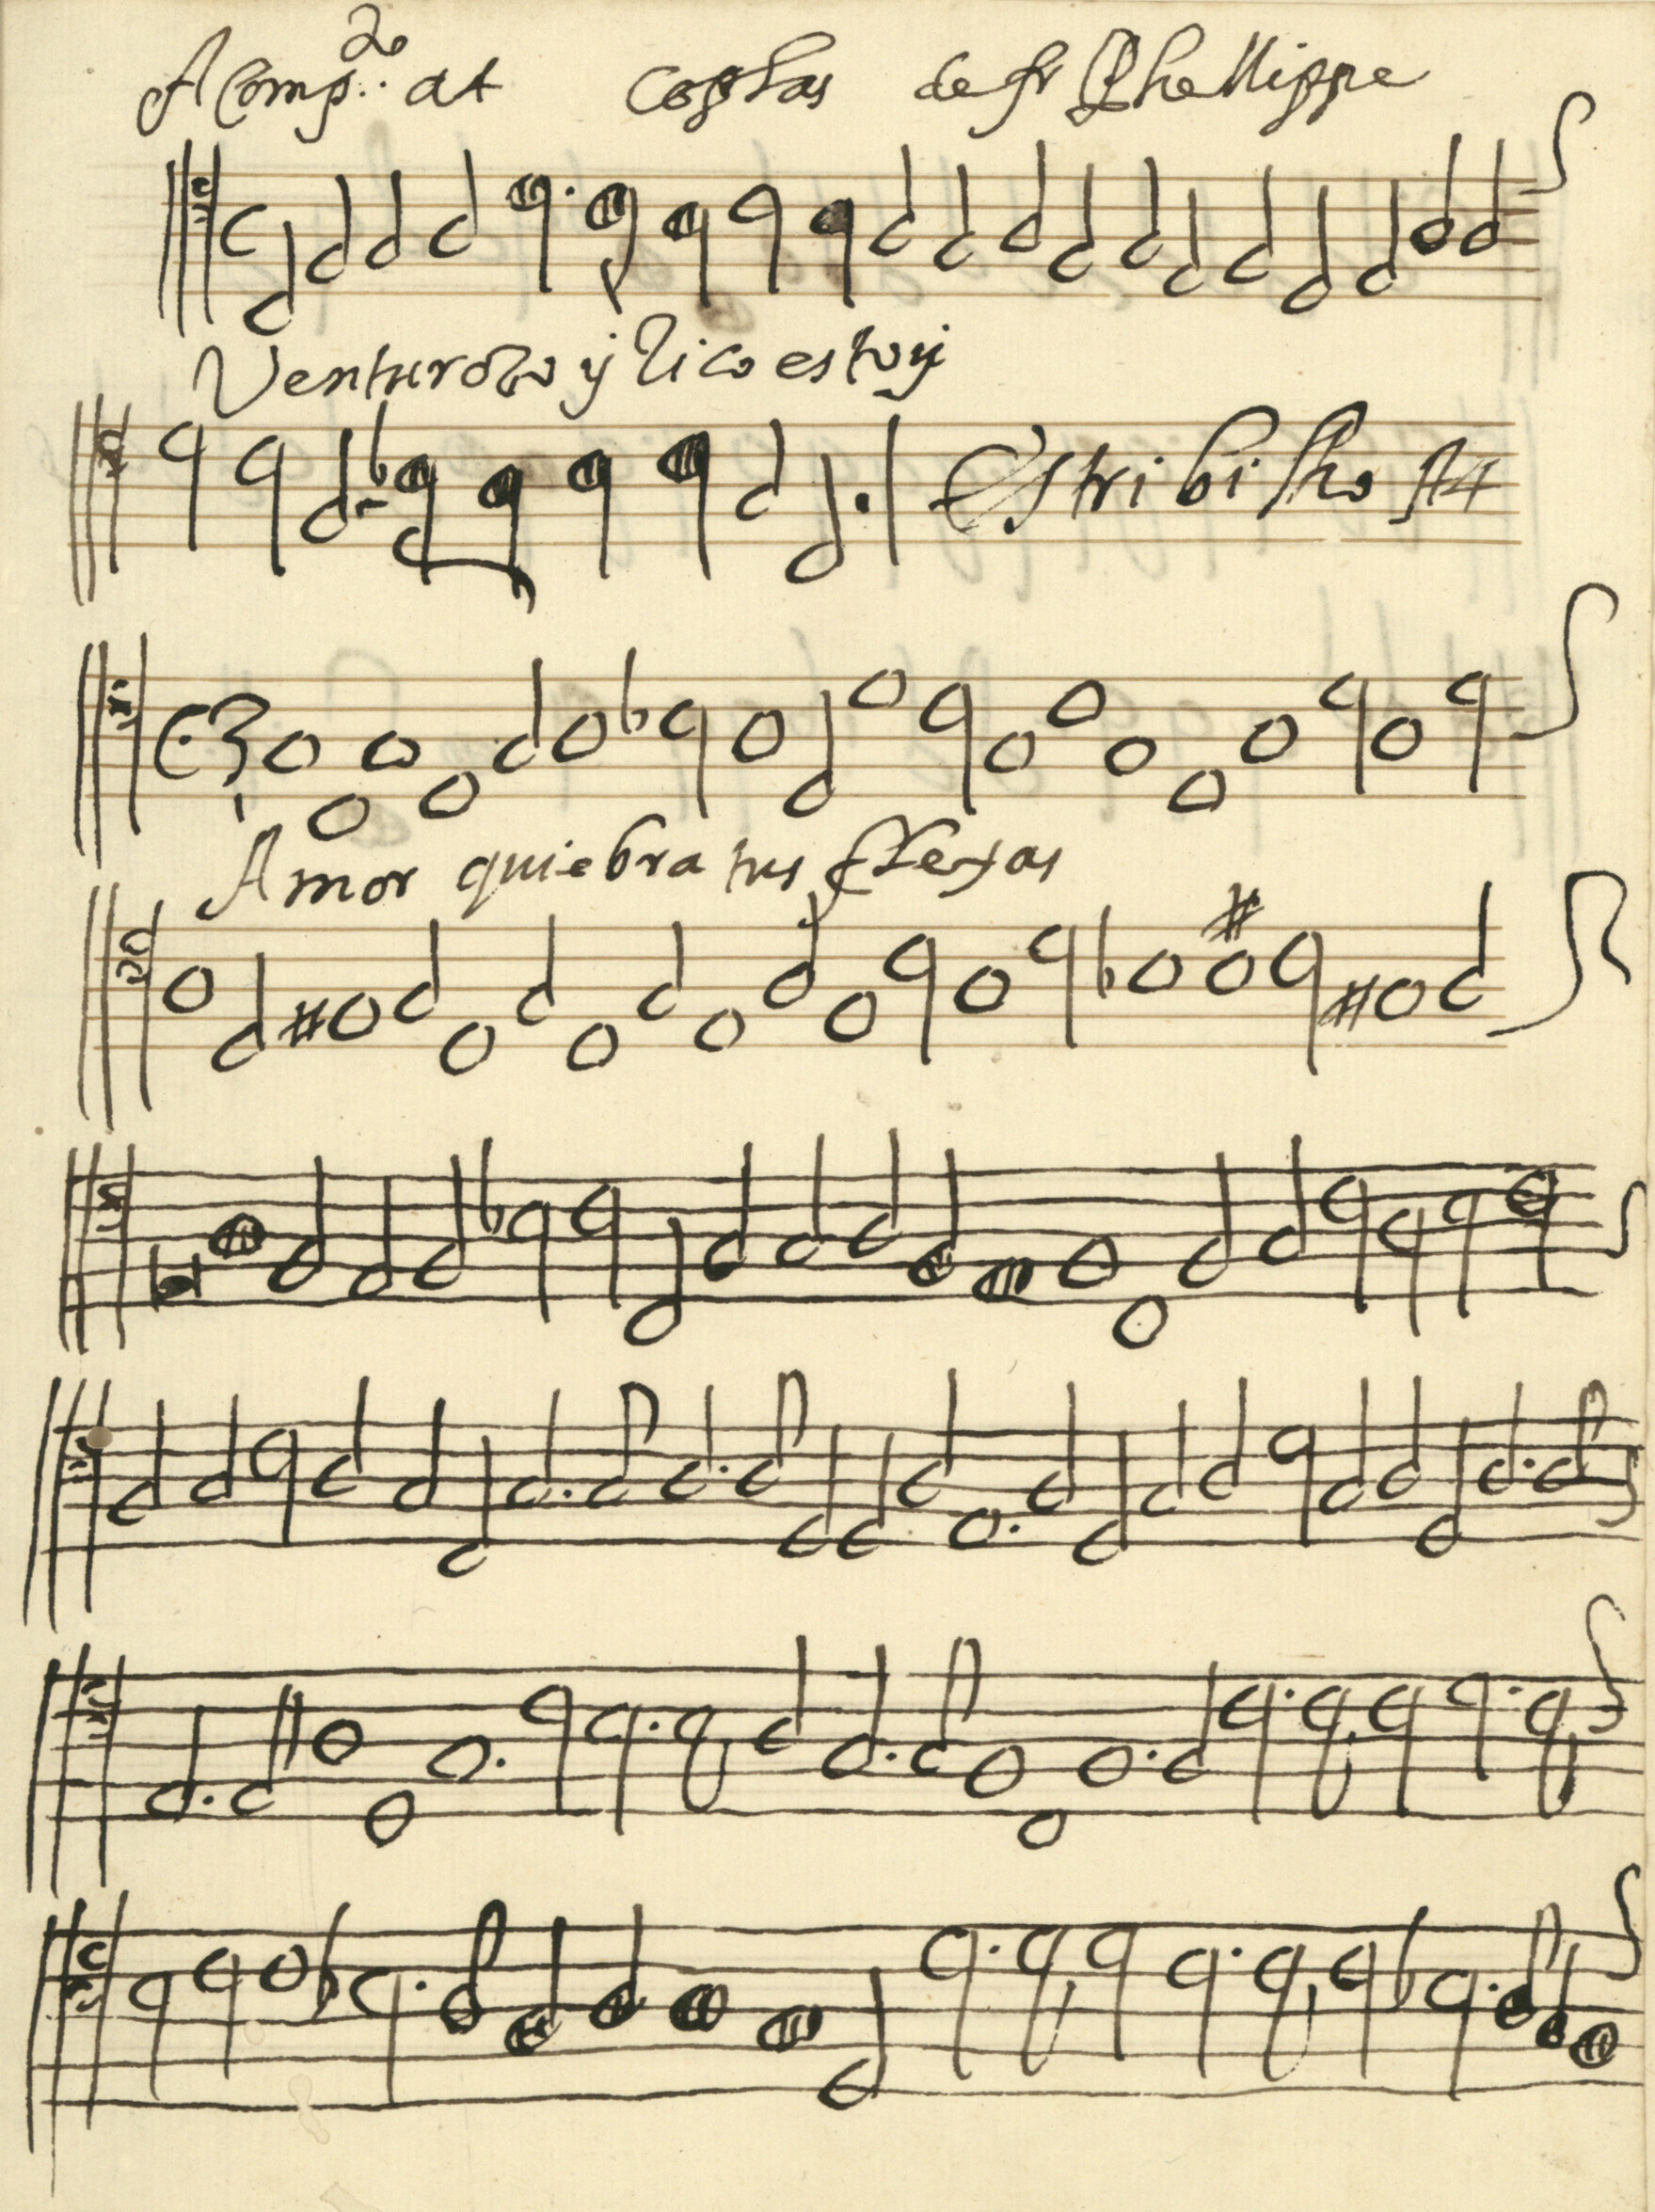 Acomp.to a 4 Coplas de fr Phellippe
Venturozo y Rico estoy
Estribilho A 4
Amor quiebra tus flexas